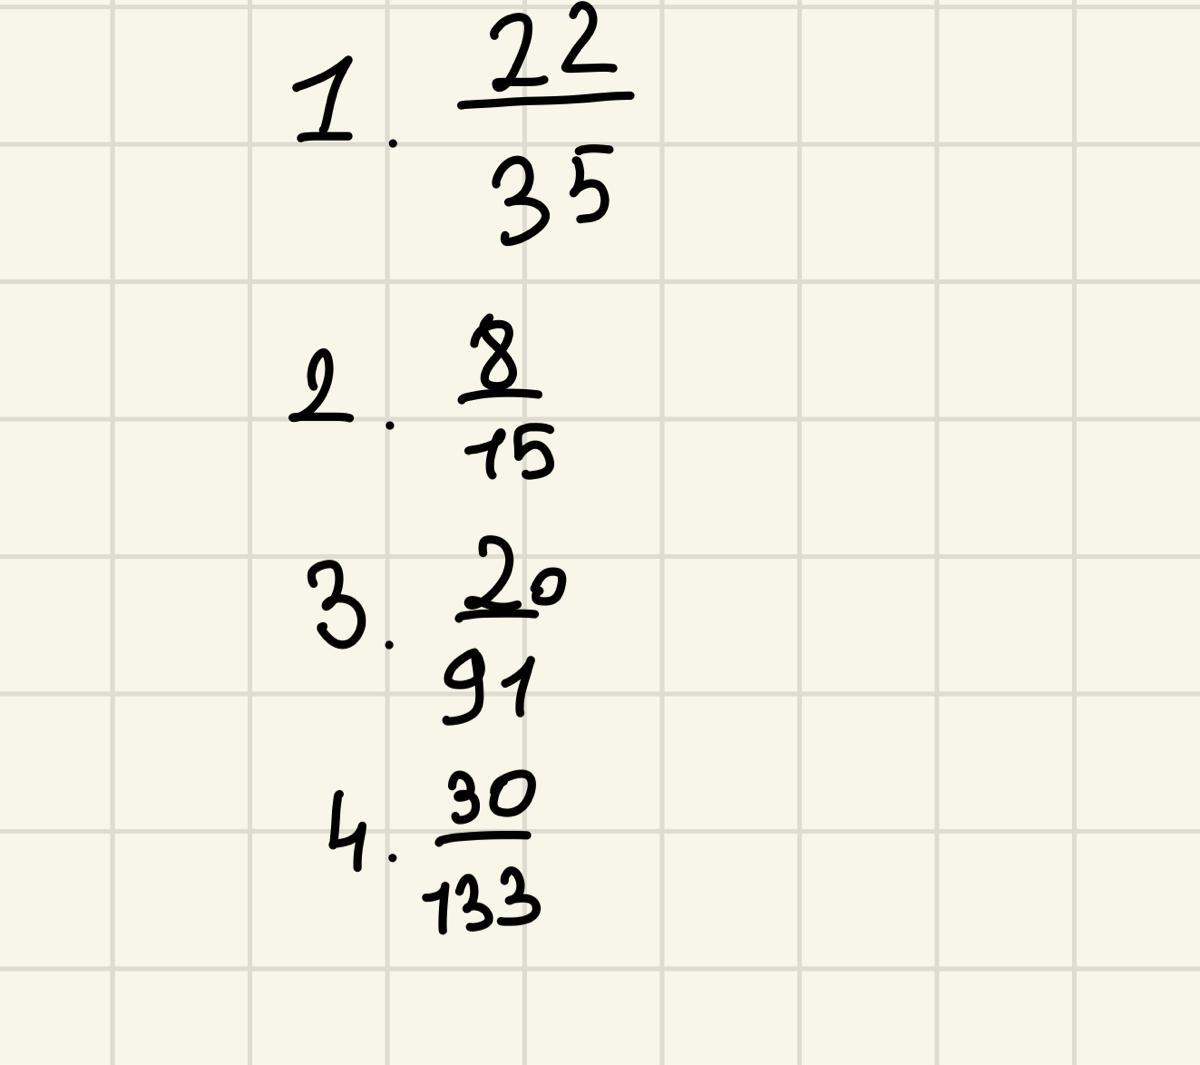 1. 22/35
2. 8/15
3. 20/91
4. 30/133